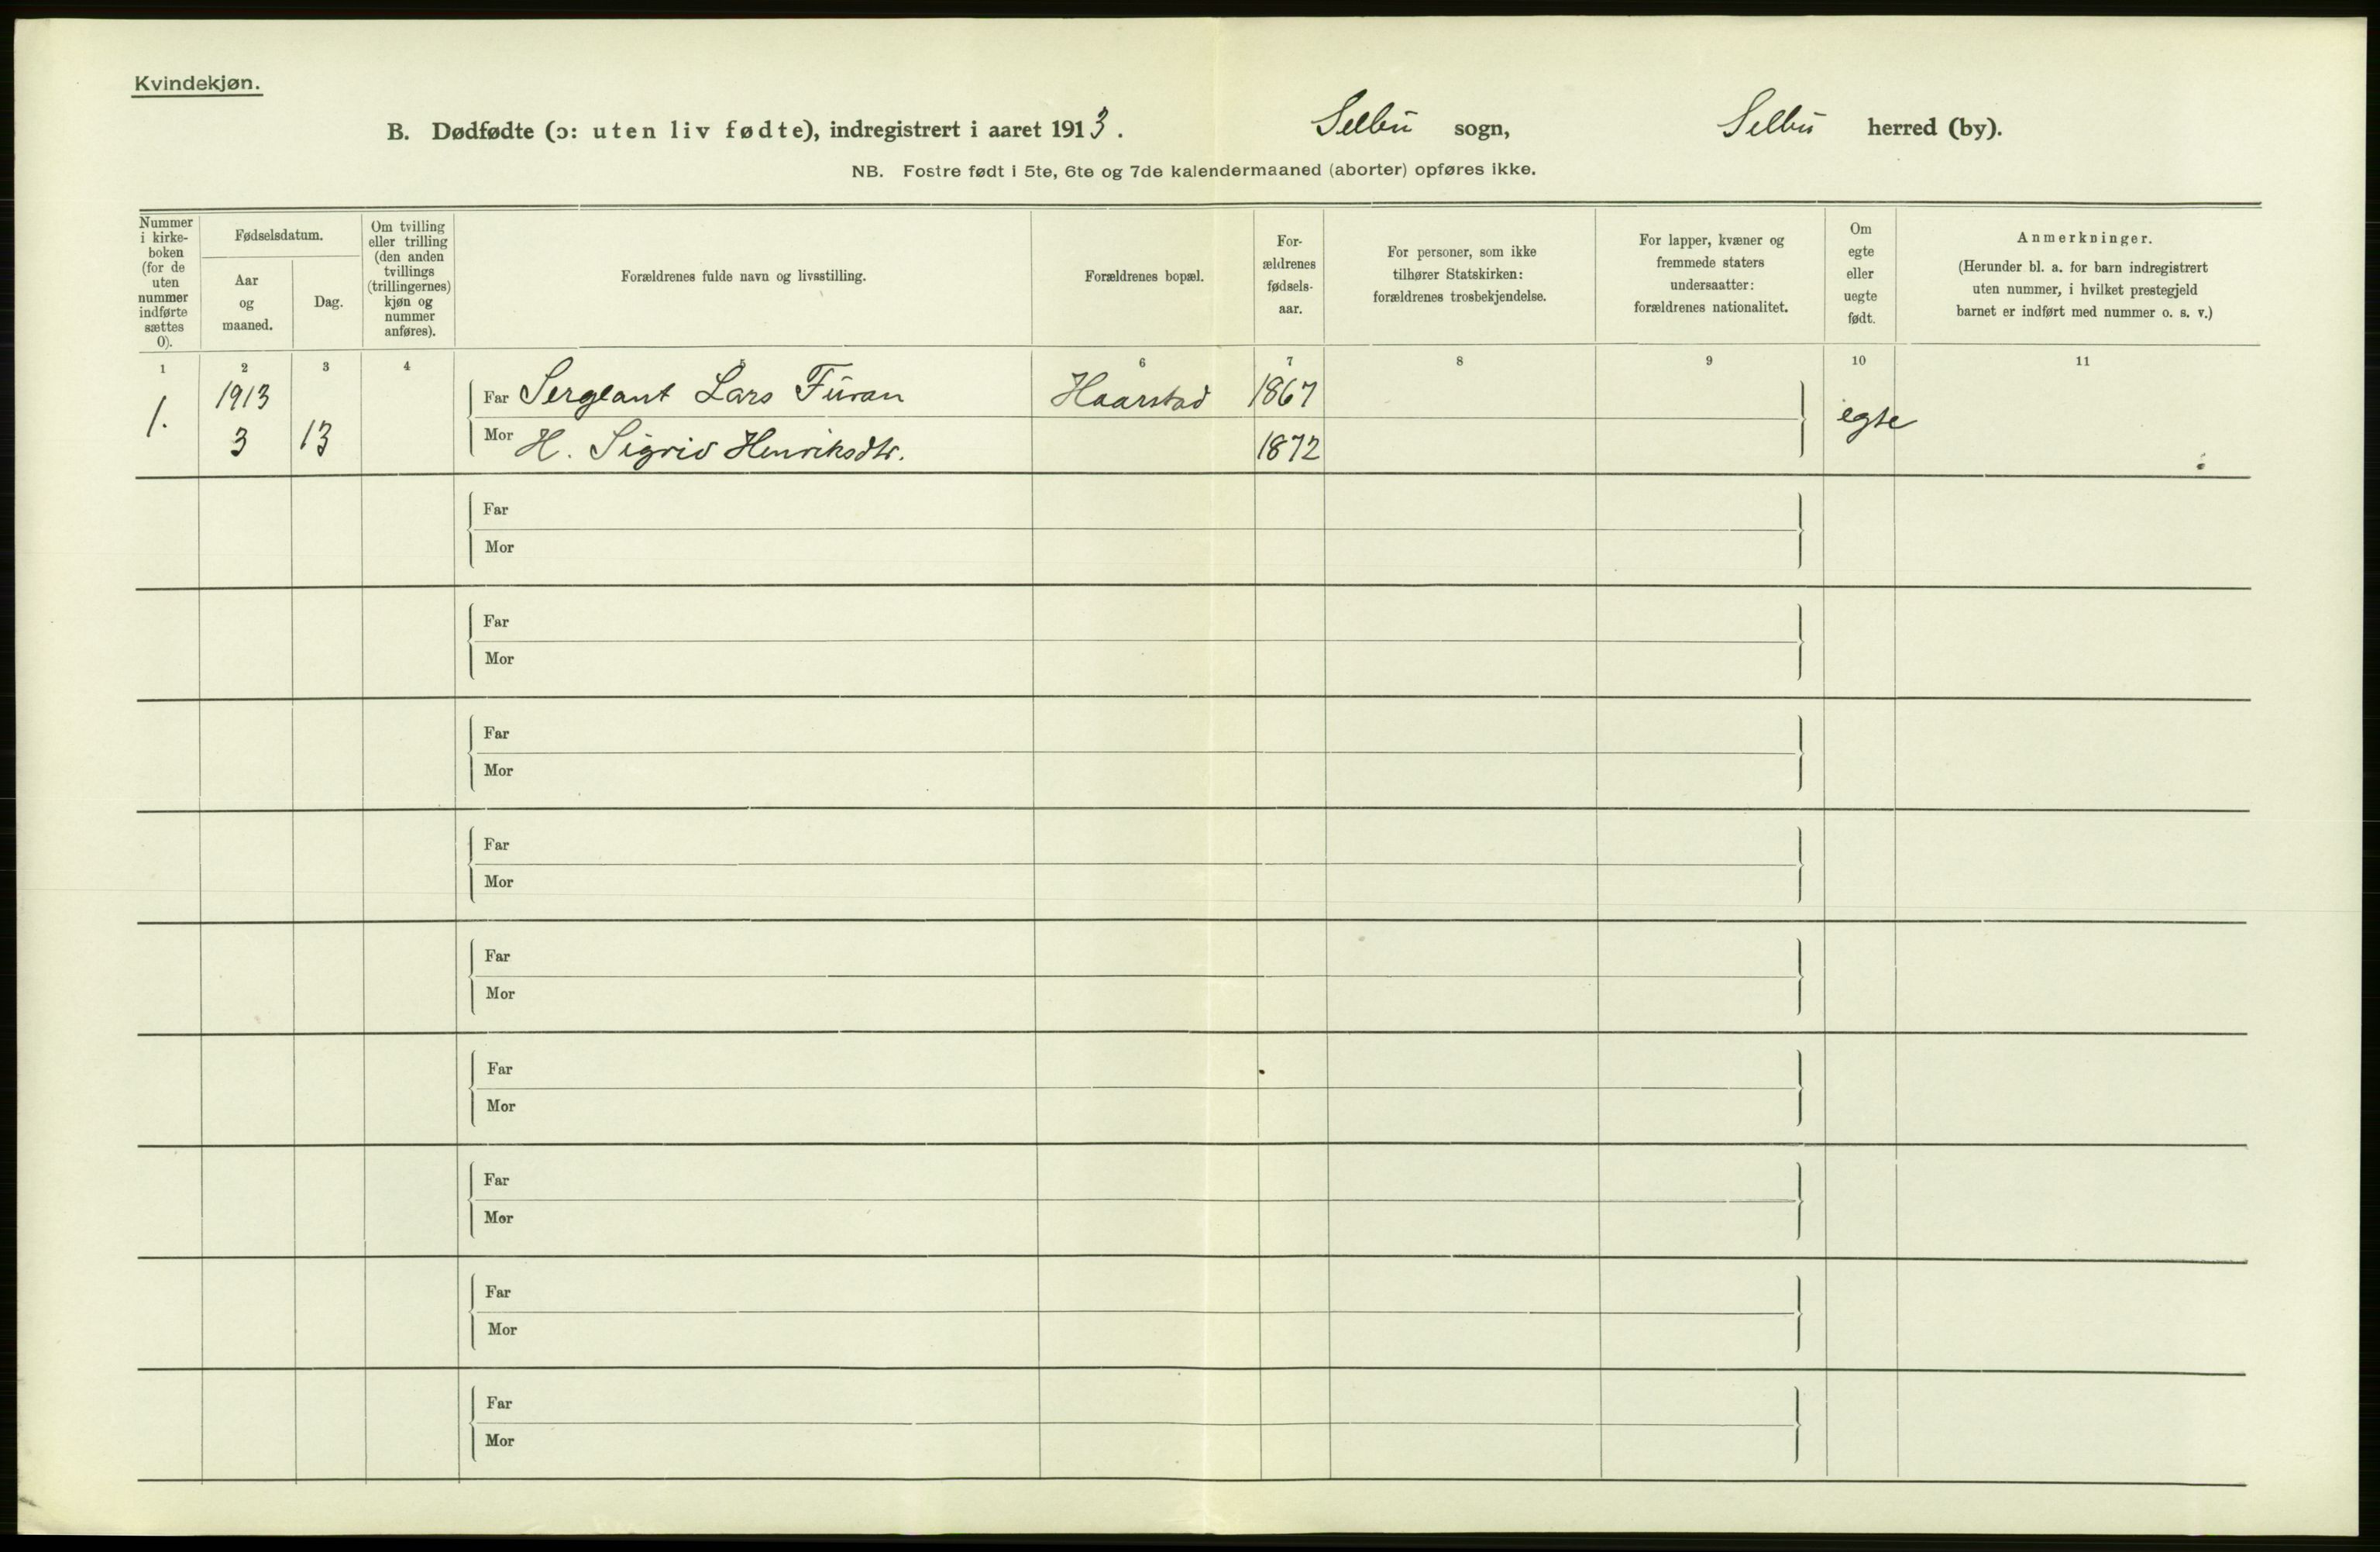 Kvindekjøn.
B. Dødfødte (ɔ: uten liv fødte), indregistrert i aaret 1913. Selbu sogn, Selbu herred (by).
NB. Fostre født i 5te, 6te og 7de kalendermaaned (aborter) opføres ikke.
Nummer
i kirke-
boken
(for de
uten
nummer
indførte
sættes
0).
Fødselsdatum.
Aar
og
maaned.
Dag.
Om tvilling
eller trilling
(den anden
tvillings
(trillingernes)
kjøn og
nummer
anføres).
Forældrenes fulde navn og livsstilling.
Forældrenes bopæl.
For-
ældrenes
fødsels-
aar.
For personer, som ikke
tilhører Statskirken:
forældrenes trosbekjendelse.
For lapper, kvæner og
fremmede staters
undersaatter:
forældrenes nationalitet.
Om
egte
eller
uegte
født.
Anmerkninger.
(Herunder bl. a. for barn indregistrert
uten nummer, i hvilket prestegjeld
barnet er indført med nummer o. s. v.)
1 2 3 4 5 6 7 8 9 10 11
1. 1913 Far Sergeant Lars Furan Haarstad 1867 egte
3 13 Mor H. Sigrid Henriksdtr. 1872
Far
Mor
Far
Mor
Far
Mor
Far
Mor
Far
Mor
Far
Mor
Far
Mor
Far
Mor
Far
Mor